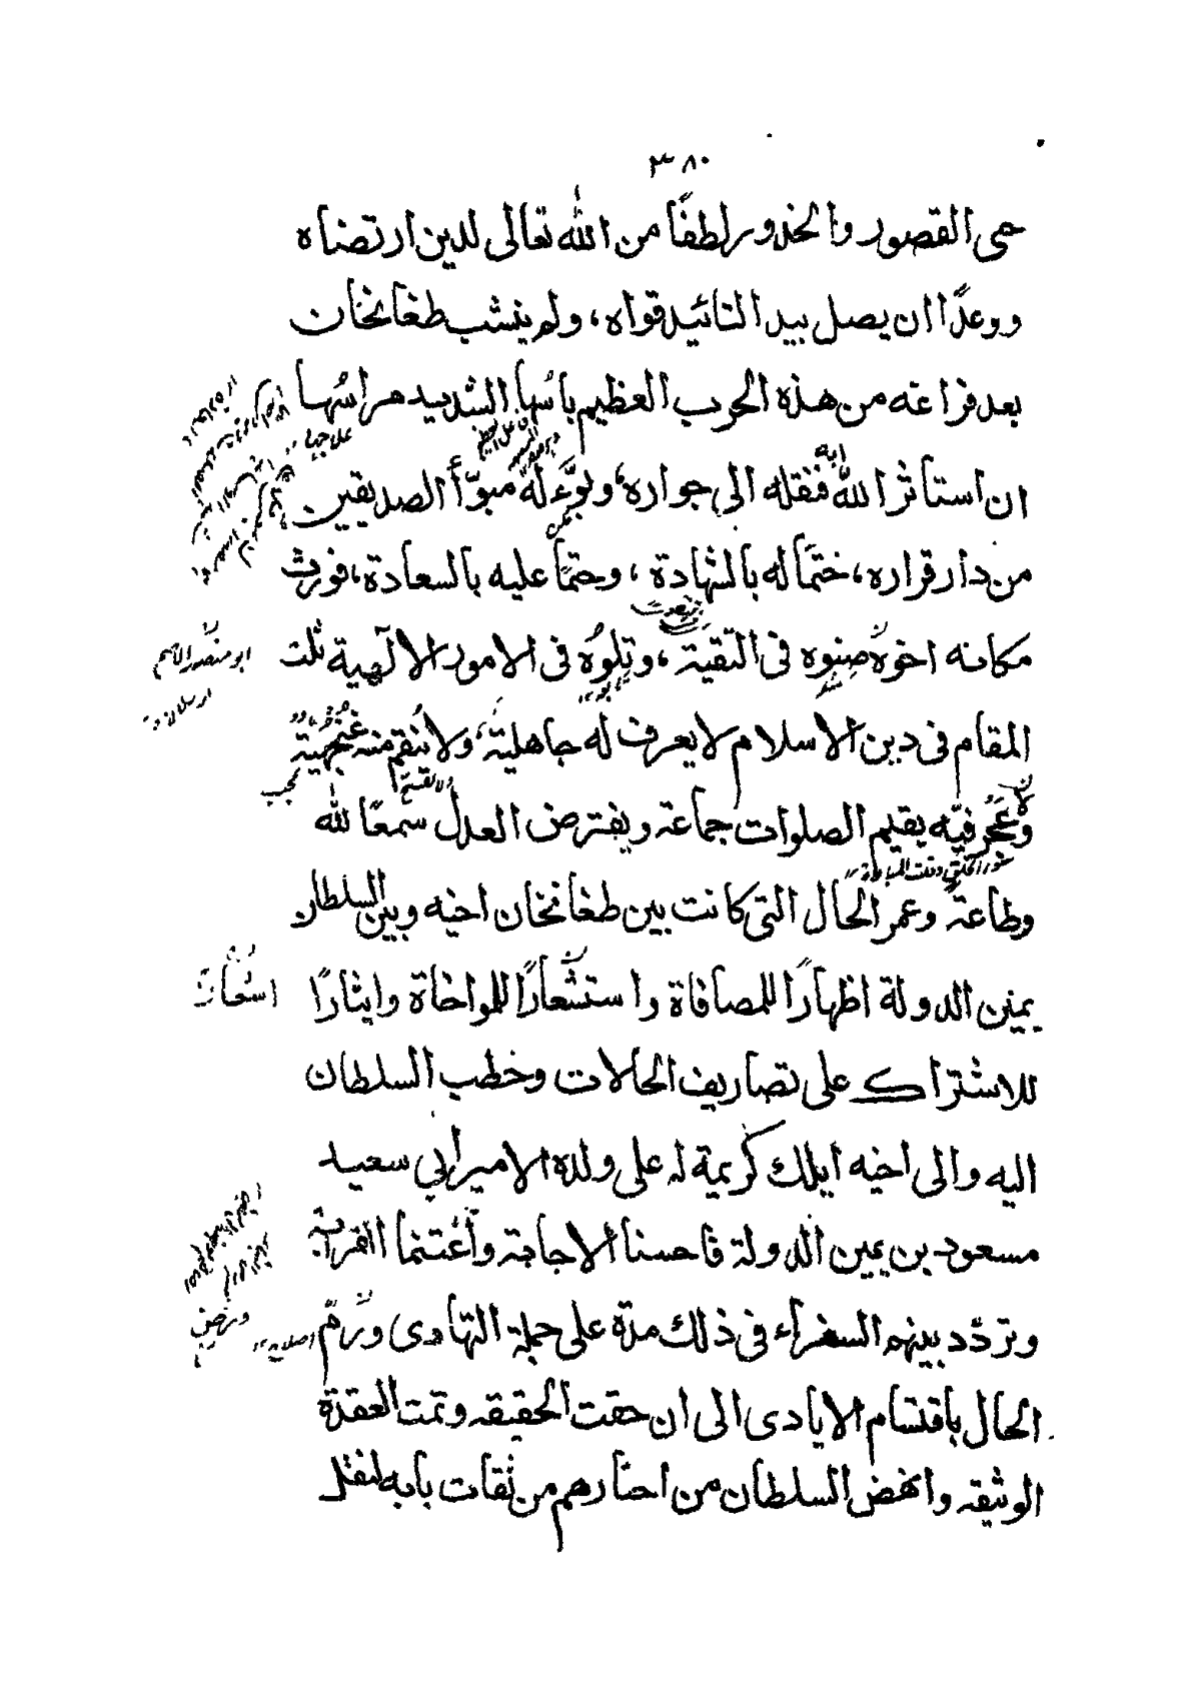 ٣٨٠
حمى القصور والخدور لطفًا من الله تعالى لدين ارتضاه
ووعدًا ان يصل بيد التائيد قواه، ولم ينشب طغانخان
بعد فراغه من هذه الحرب العظيم باسُها الشديد مراسُها
ان استأثر الله فنقله الى جواره، وبوَّءَ له مبوّأ الصديقين
من دار قراره، ختمًا له بالشهادة، وحتمًا عليه بالسعادة، فورث
مكانه اخوه صِنوه فى التّقية، وتِلوُه فى الامور الآلهية ثلت
ابو منصور
ارسلان
المقام فى دين الاسلام لا يعرف له جاهلية، ولا يُنقم منه عُنجُهية
وعَجرفيّه يقيم الصلوات جماعة ويفترض العدل سمعًا لله
وطاعة وعمر الحال التى كانت بين طغانخان اخيه وبين السلطان
يمين الدولة اظهارًا للمصافاة واستشعارًا للمواخاة وايثارًا
للاشتراك على تصاريف الحالات وخطب السلطان
اليه والى اخيه ايلك كريمة له على ولده الامير ابي سعيد
مسعود بن يمين الدولة فاحسنا الاجابة واغتنما القرابة
وتردّد بينهم السفراء فى ذلك مدة على جملة التهادى ورمّ
الحال باقتسام الايادى الى ان حقت الحقيقه وتمت العقدة
الوثيقه وانهض السلطان من اختارهم من ثقات بابه لنقل